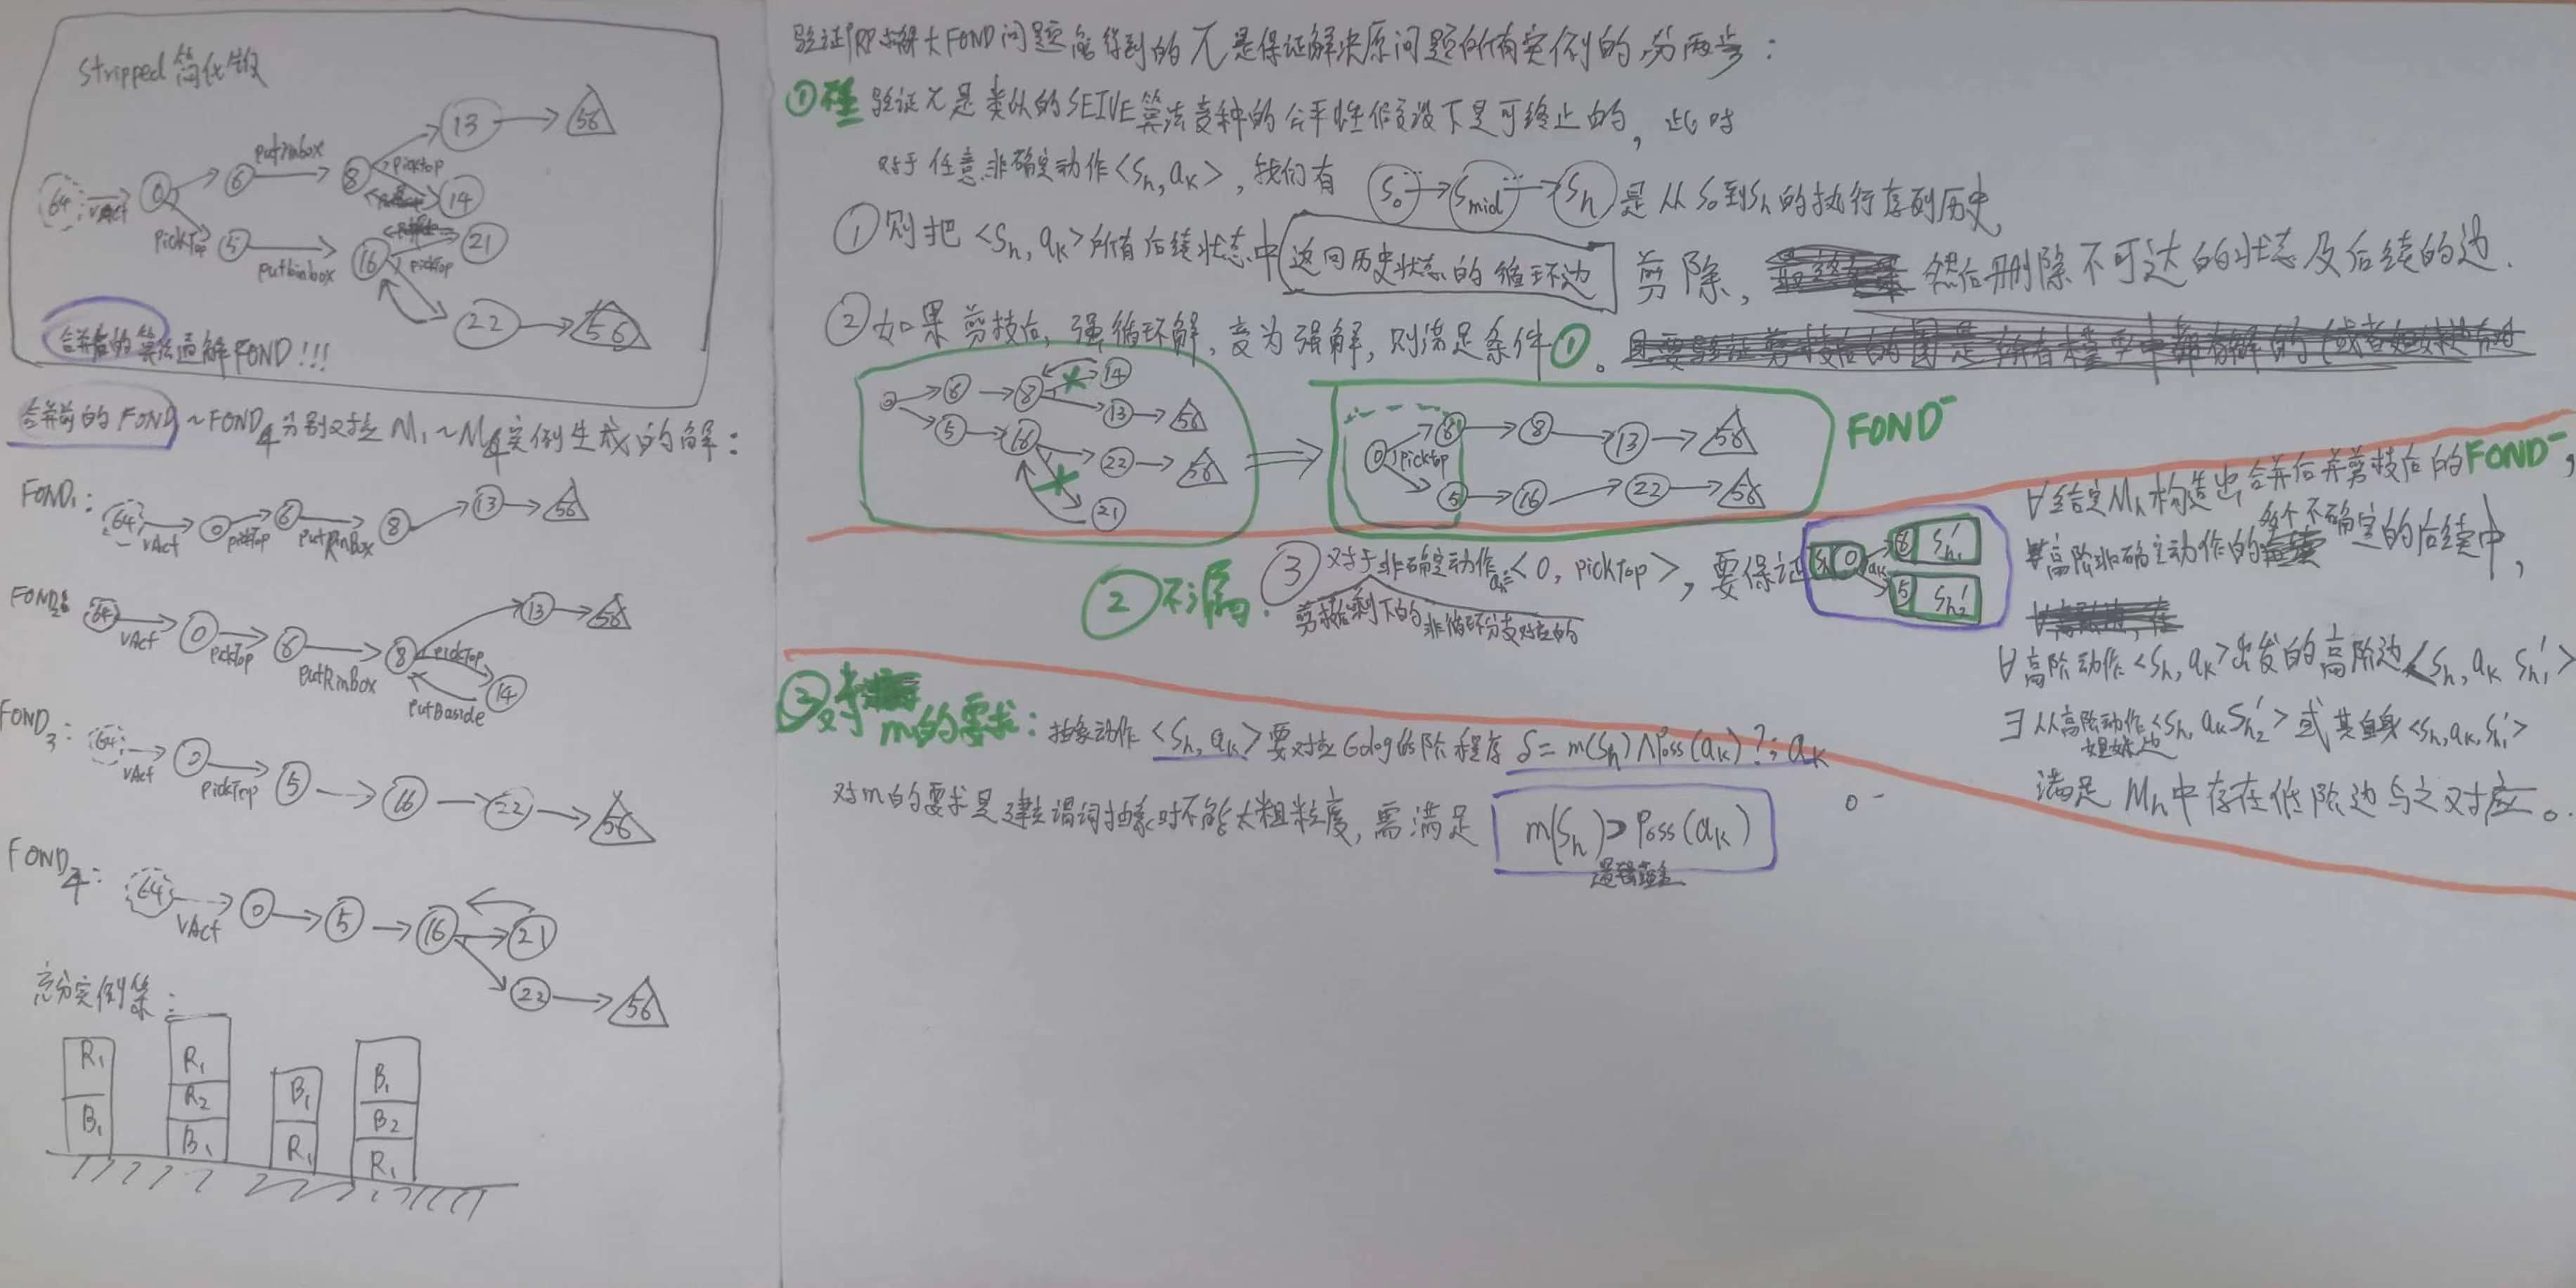 Stripped 简化版
64 vAct 0 6 putRinbox 8 picktop 13 56
14
PickTop 5 putbinbox 16 picktop 21
22 56
合并后的算法通解FOND!!!
合并前的FOND₁~FOND₄分别对应M₁~M₄实例生成的解:
FOND₁: 64 vAct 0 pickTop 6 putRinBox 8 13 56
FOND₂: 64 vAct 0 pickTop 6 putRinBox 8 pickTop 13 56
putBaside 14
FOND₃: 64 vAct 0 pickTop 5 16 22 56
FOND₄: 64 vAct 0 5 16 21
22 56
充分实例集:
R₁ B₁
R₁ R₂ B₁
B₁ R₁
B₁ B₂ R₁
验证PRP求解大FOND问题 得到的π是保证解决原问题所有实例的,分两步:
① 验证π是类似的SEIVE算法变种的公平性假设下是可终止的,此时
对于任意非确定动作<Sh, ak>,我们有 S₀ → Smid → Sh 是从S₀到Sh的执行序列历史,
① 则把<Sh, ak>所有后续状态中 返回历史状态的循环边 剪除, 然后删除不可达的状态及后续的边.
② 如果剪枝后,强循环解,变为强解,则满足条件①。
0 6 8 14
13 56
5 16 22 56
21
0 picktop 6 8 13 56
5 16 22 56
FOND⁻
② 不漏: ③ 对于非确定动作 ak=<0, pickTop>,要保证 Sh 0 ak 6 Sh₁′
5 Sh₂′
剪枝后剩下的非循环分支对应的
∀给定Mn构造出合并后并剪枝后的FOND⁻,
∀高阶非确定动作的每个不确定的后续中,
∀高阶动作<Sh, ak>出发的高阶边<Sh, ak, Sh₁′>
∃从高阶动作<Sh, ak Sh₂′>或其自身<Sh, ak, Sh₁′>
姐妹边
满足Mn中存在低阶边与之对应。
③ 对m的要求: 抽象动作<Sh, ak>要对应Golog低阶程序 δ = m(Sh)∧Poss(ak)?; ak
对m的要求是建立谓词抽象时不能太粗粒度,需满足 m(Sh)⊃Poss(ak)
逻辑蕴含